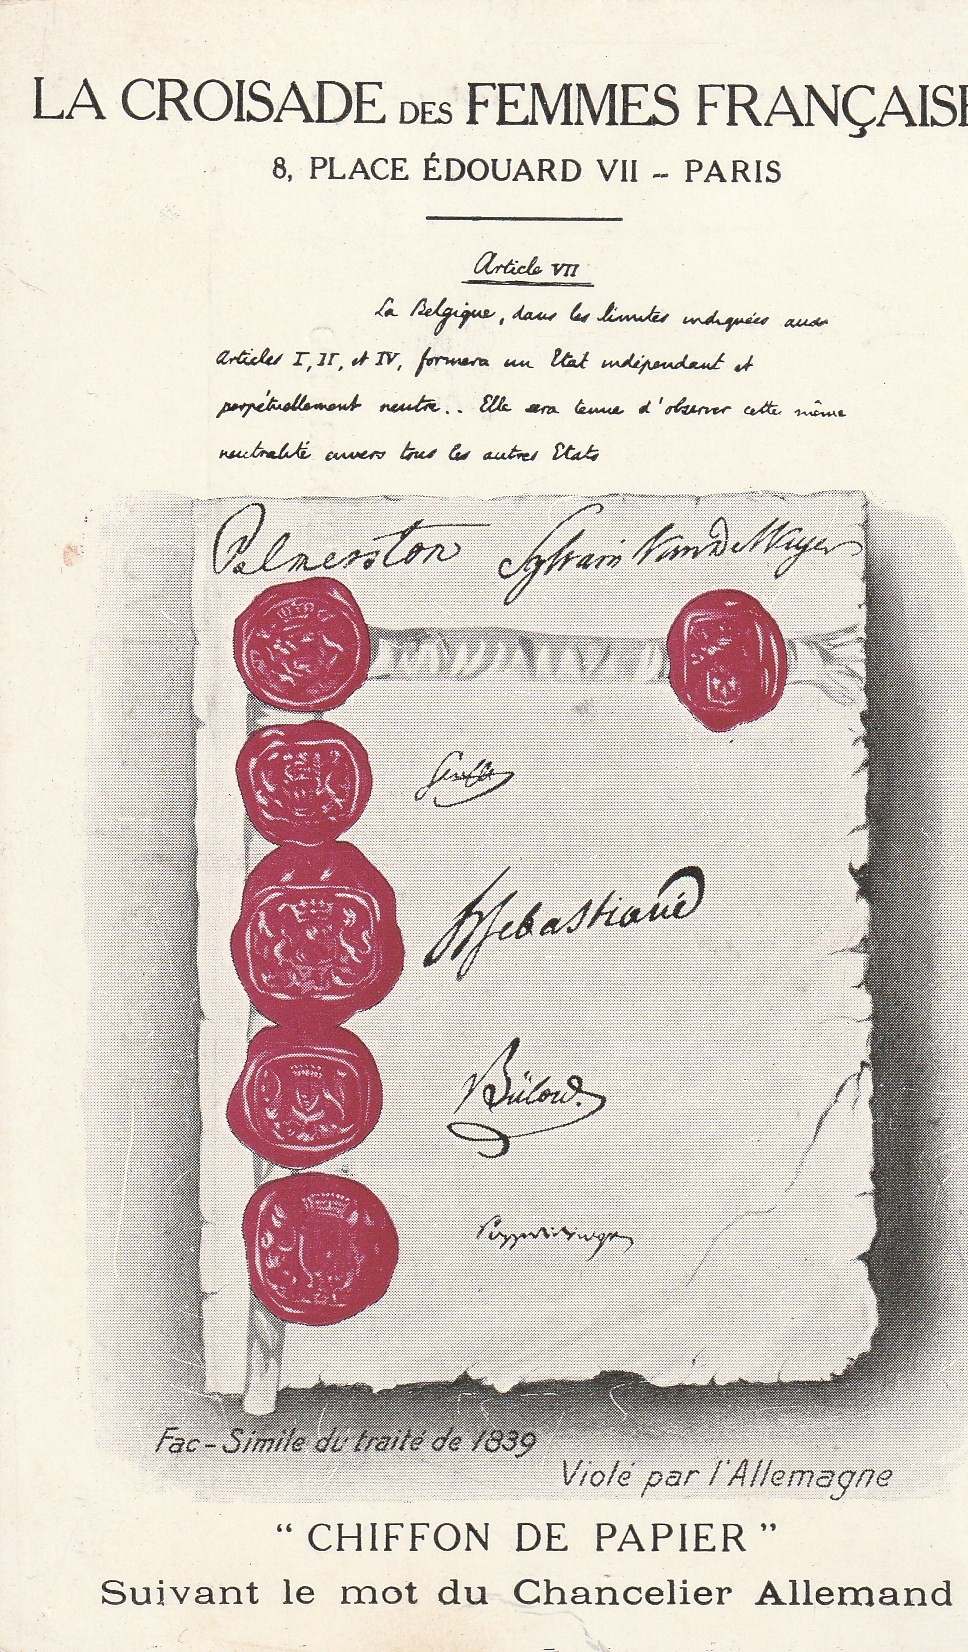 LA CROISADE DES FEMMES FRANÇAISE
8, PLACE ÉDOUARD VII - PARIS
Article VII
La Belgique, dans les limites indiquées aux
Articles I, II, et IV, formera un Etat indépendant et
perpétuellement neutre.. Elle sera tenue d'observer cette même
neutralité envers tous les autres Etats
Palmerston Sylvain Van de Weyer
Senfft
HSebastiani
Bülow
Fac-Simile du traité de 1839
Violé par l'Allemagne
“ CHIFFON DE PAPIER ”
Suivant le mot du Chancelier Allemand